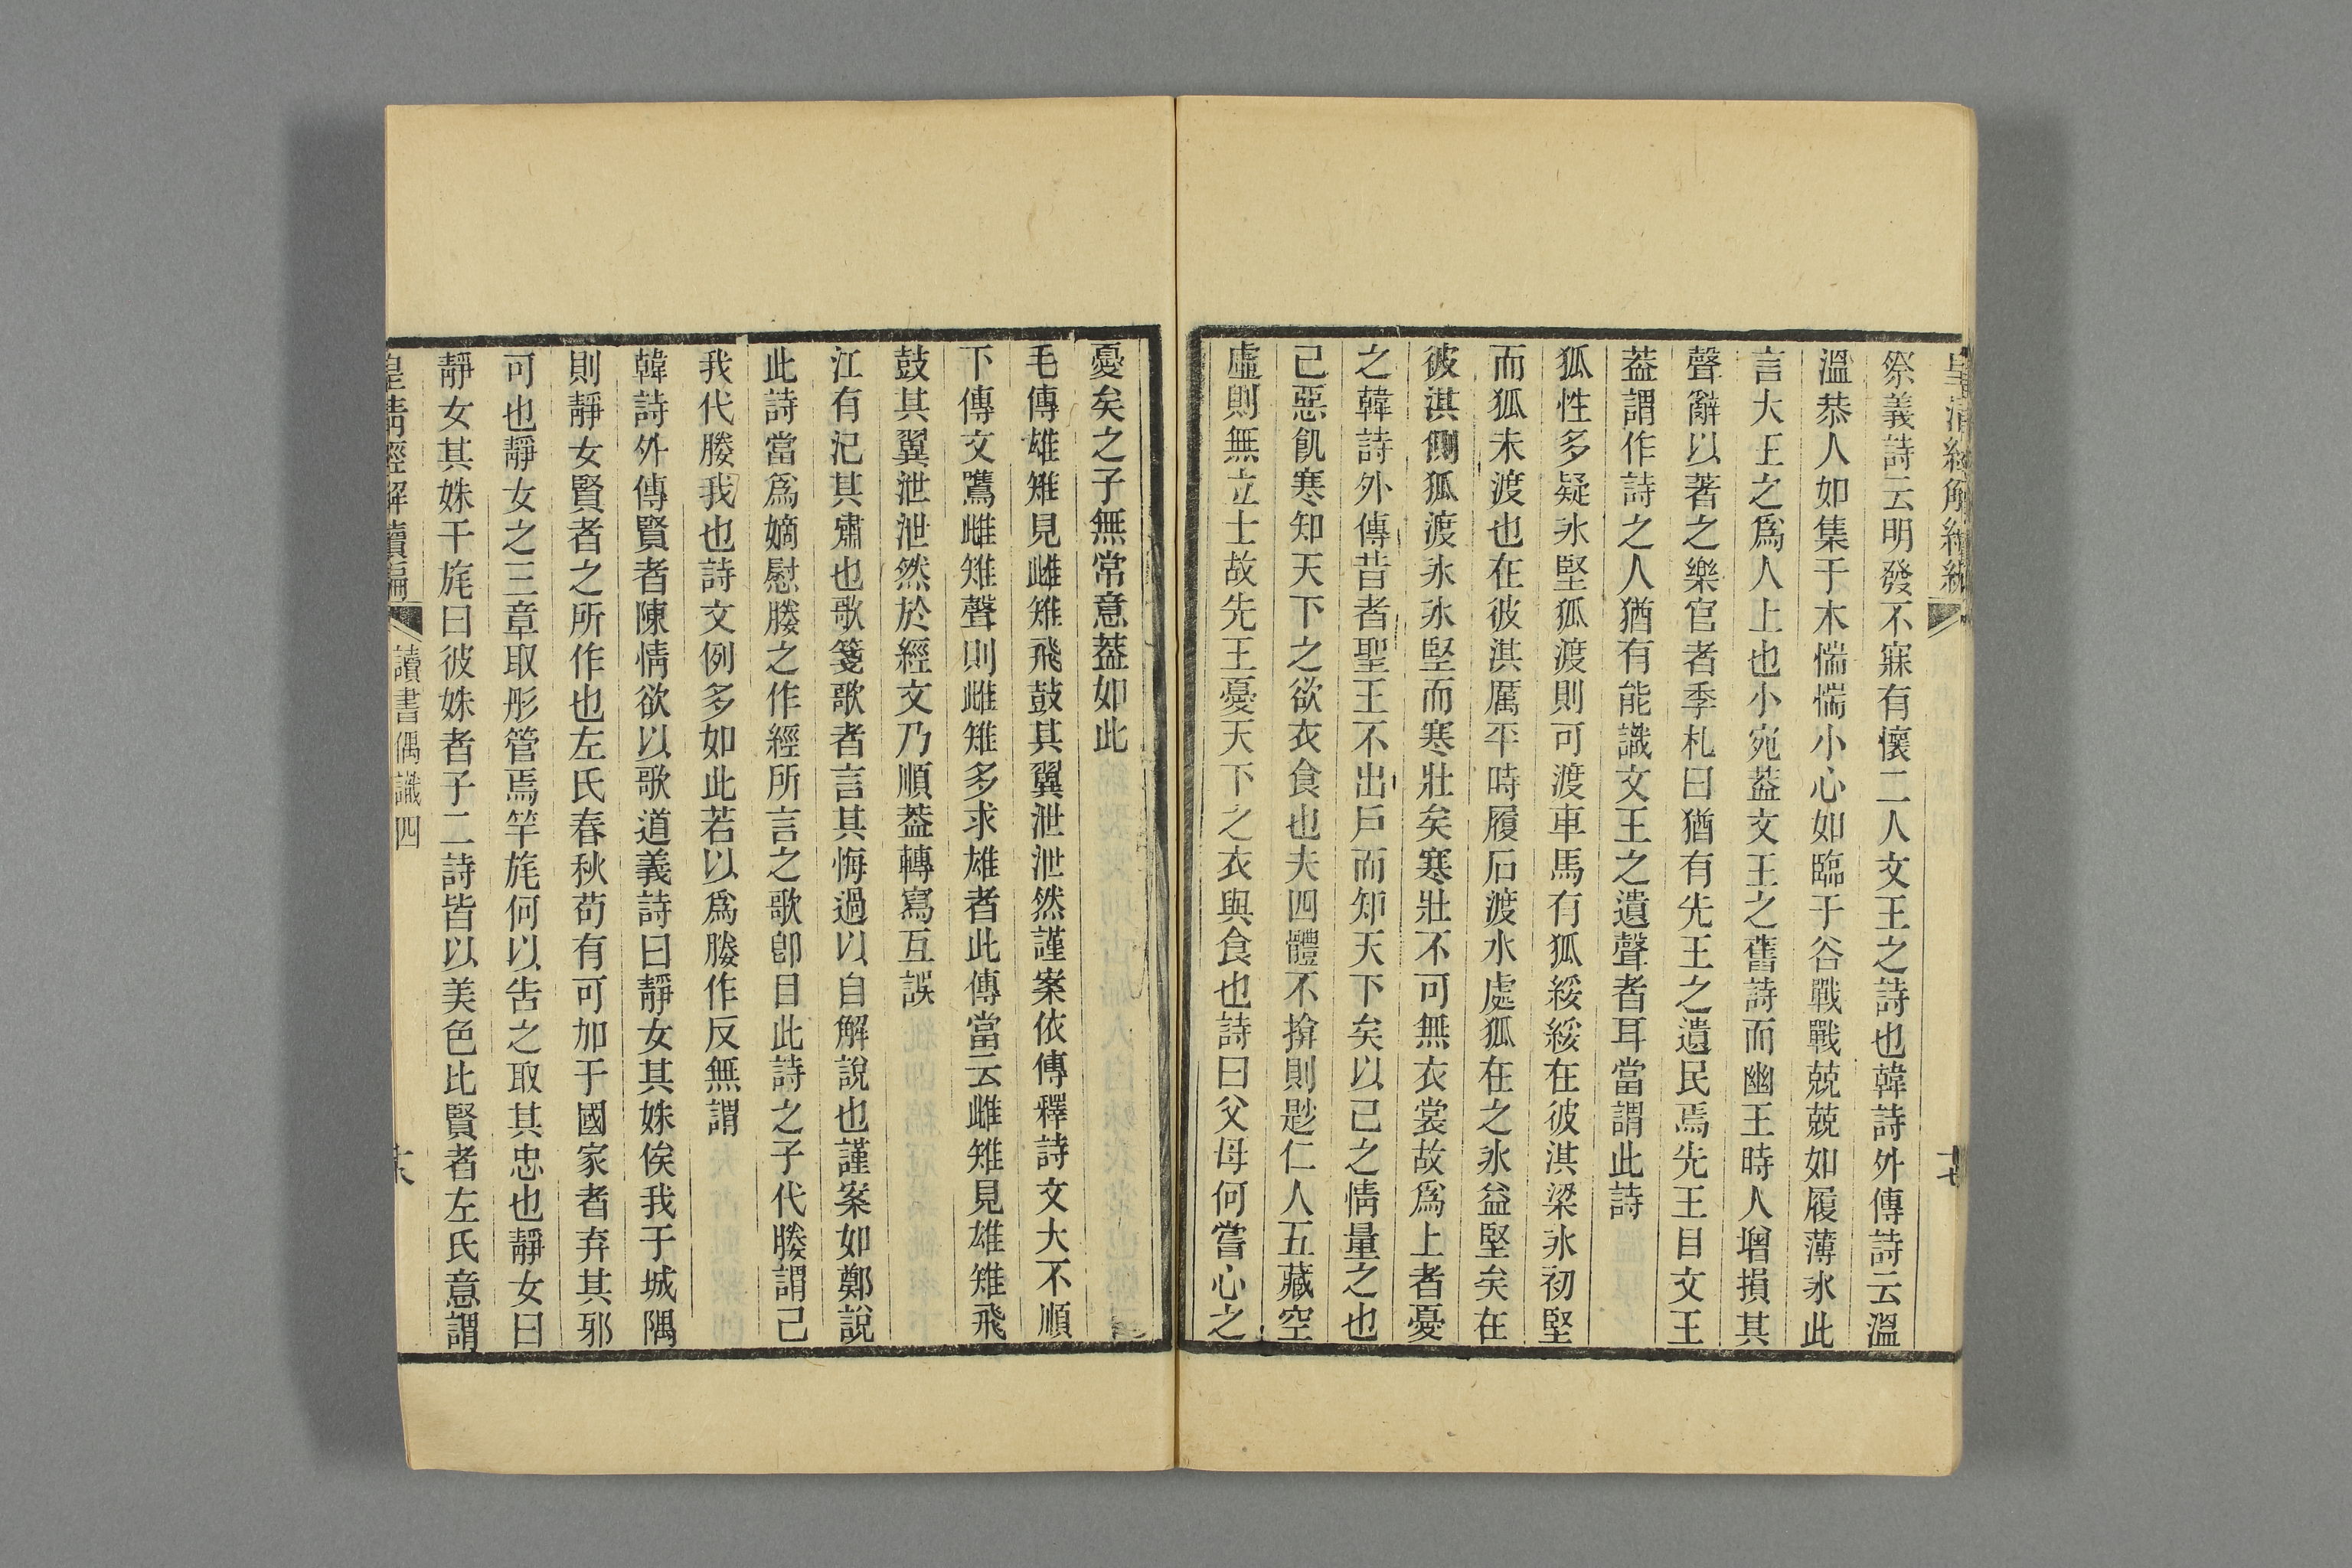 皇清經解續編
十七
祭義詩云明發不寐有懷二人文王之詩也韓詩外傳詩云溫
溫恭人如集于木惴惴小心如臨于谷戰戰兢兢如履薄氷此
言大王之爲人上也小宛葢文王之舊詩而幽王時人增損其
聲辭以著之樂官者季札曰猶有先王之遺民焉先王目文王
葢謂作詩之人猶有能識文王之遺聲者耳當謂此詩
狐性多疑氷堅狐渡則可渡車馬有狐綏綏在彼淇梁氷初堅
而狐未渡也在彼淇厲平時履石渡水處狐在之氷益堅矣在
彼淇側狐渡氷氷堅而寒壯矣寒壯不可無衣裳故爲上者憂
之韓詩外傳昔者聖王不出戶而知天下矣以己之情量之也
己惡飢寒知天下之欲衣食也夫四體不揜則尟仁人五藏空
虛則無立士故先王憂天下之衣與食也詩曰父母何嘗心之
憂矣之子無常意葢如此
毛傳雄雉見雌雉飛鼓其翼泄泄然謹案依傳釋詩文大不順
下傳文鷕雌雉聲則雌雉多求雄者此傳當云雌雉見雄雉飛
鼓其翼泄泄然於經文乃順葢轉寫互誤
江有汜其肅也歌箋歌者言其悔過以自解說也謹案如鄭說
此詩當爲嫡慰媵之作經所言之歌卽目此詩之子代媵謂己
我代媵我也詩文例多如此若以爲媵作反無謂
韓詩外傳賢者陳情欲以歌道義詩曰靜女其姝俟我于城隅
則靜女賢者之所作也左氏春秋苟有可加于國家者弃其邪
可也靜女之三章取彤管焉竿旄何以告之取其忠也靜女曰
靜女其姝干旄曰彼姝者子二詩皆以美色比賢者左氏意謂
皇清經解續編
讀書偶識四